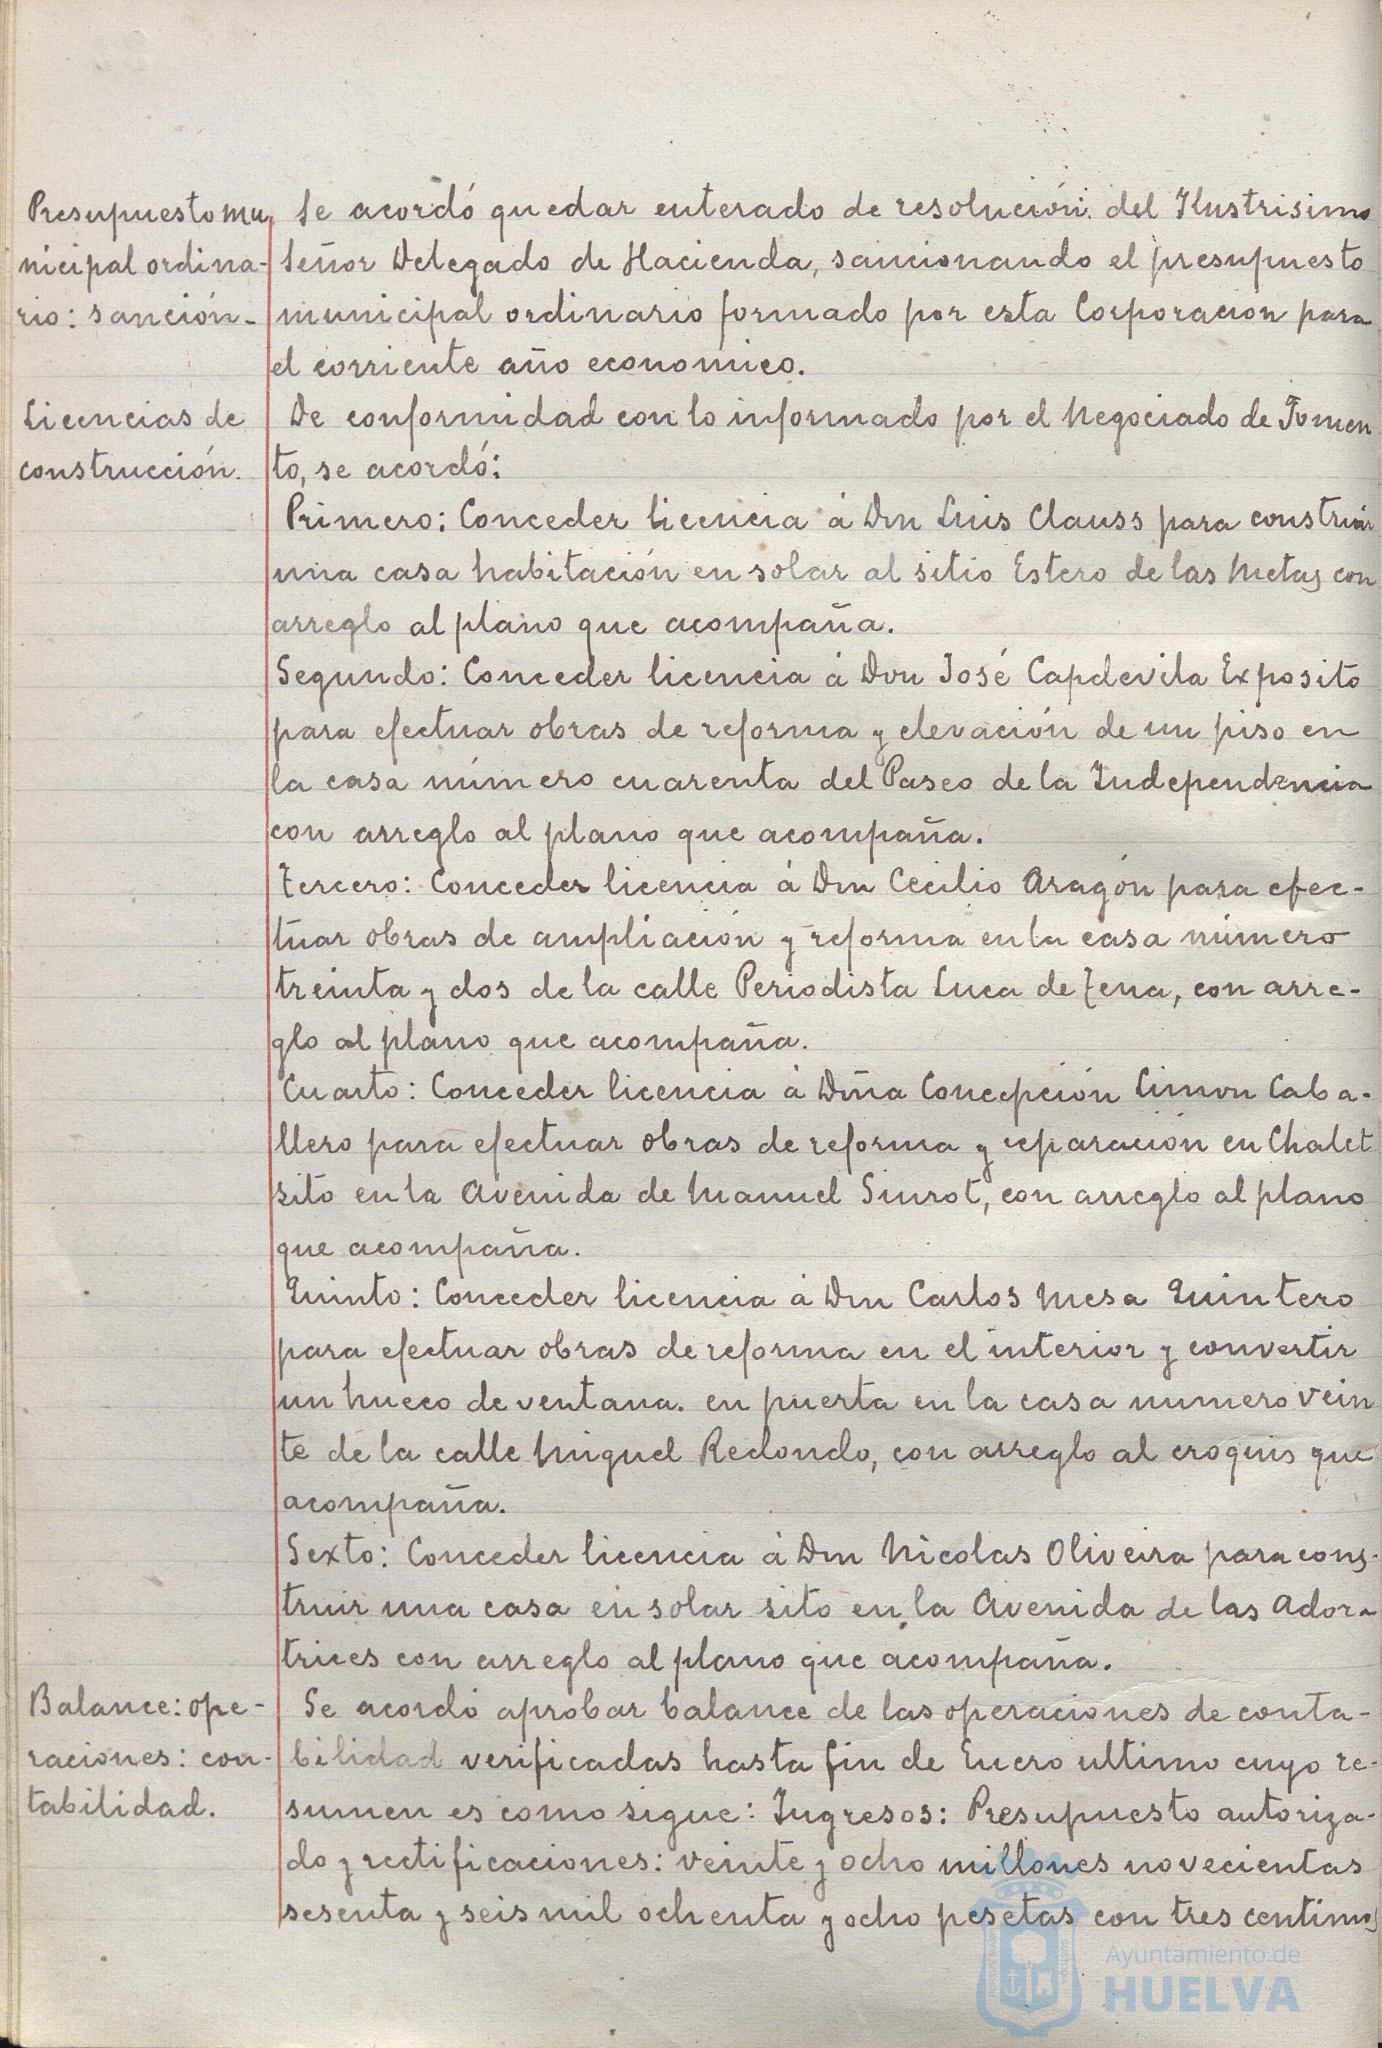 Presupuesto mu
nicipal ordina-
rio: sanción-
Se acordó quedar enterado de resolución del Ilustrisimo
Señor Delegado de Hacienda, sancionando el presupuesto
municipal ordinario formado por esta Corporacion para
el corriente año economico.
Licencias de
construcción.
De conformidad con lo informado por el Negociado de Fomen
to, se acordó:
Primero: Conceder licencia á Don Luis Clauss para construir
una casa habitación en solar al sitio Estero de las Metas con
arreglo al plano que acompaña.
Segundo: Conceder licencia á Don José Capdevila Exposito
para efectuar obras de reforma y elevación de un piso en
la casa número cuarenta del Paseo de la Independencia
con arreglo al plano que acompaña.
Tercero: Conceder licencia á Don Cecilio Aragón para efec-
tuar obras de ampliación y reforma en la casa número
treinta y dos de la calle Periodista Luca de Tena, con arre-
glo al plano que acompaña.
Cuarto: Conceder licencia á Dña Concepción Limon Caba-
llero para efectuar obras de reforma y reparación en Chalet
sito en la Avenida de Manuel Siurot, con arreglo al plano
que acompaña.
Quinto: Conceder licencia á Don Carlos Mesa Quintero
para efectuar obras de reforma en el interior y convertir
un hueco de ventana. en puerta en la casa numero vein
te de la calle Miguel Redondo, con arreglo al croquis que
acompaña.
Sexto: Conceder licencia á Don Nicolas Oliveira para cons-
truir una casa en solar sito en la Avenida de las Ador-
trices con arreglo al plano que acompaña.
Balance: ope-
raciones: con-
tabilidad.
Se acordó aprobar balance de las operaciones de conta-
bilidad verificadas hasta fin de Enero ultimo cuyo re-
sumen es como sigue: Ingresos: Presupuesto autoriza-
do y rectificaciones: veinte y ocho millones novecientas
sesenta y seis mil ochenta y ocho pesetas con tres centimos
Ayuntamiento de
HUELVA